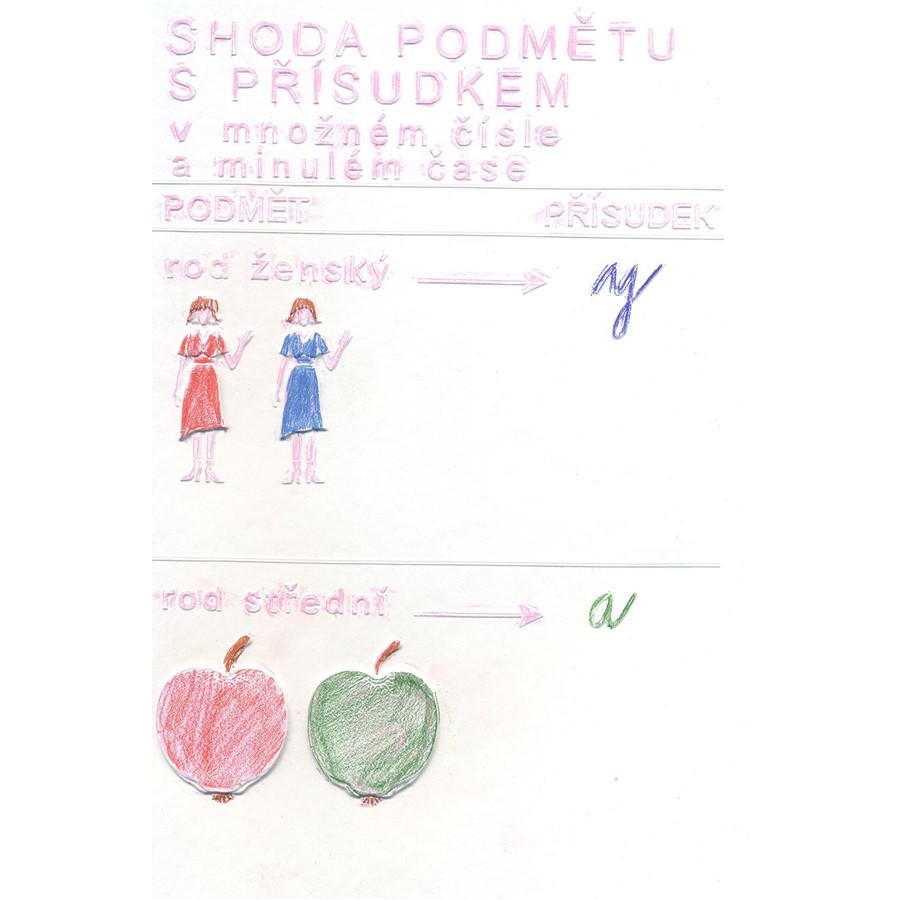 SHODA PODMĚTU
S PŘÍSUDKEM
v množném čísle
a minulém čase
PODMĚT PŘÍSUDEK
rod ženský y
rod střední a